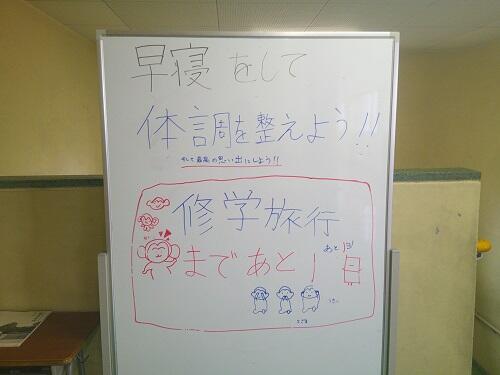 早寝をして
体調を整えよう!!
そして最高の思い出にしよう!!
修学旅行
まであと1
あと1日!